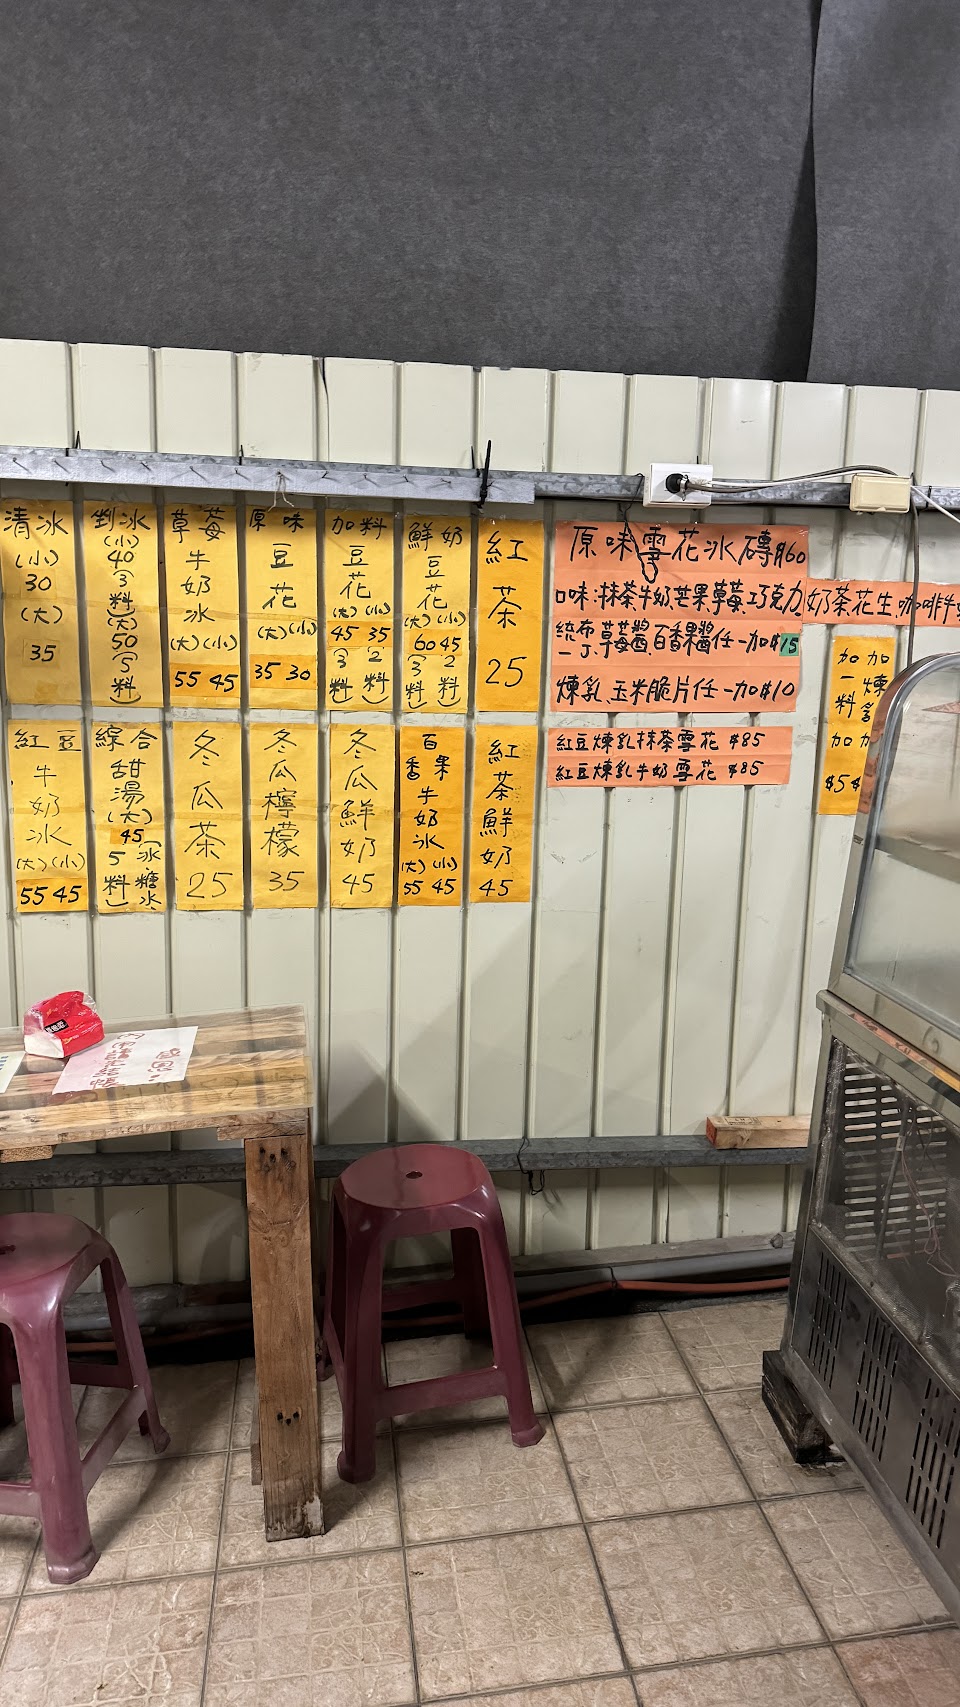 清冰
(小)
30
(大)
35
剉冰
(小)
40
(3料)
(大)
50
(5料)
草莓
牛奶冰
(大)(小)
55 45
原味
豆花
(大)(小)
35 30
加料
豆花
(大)(小)
45 35
(3料)(2料)
鮮奶
豆花
(大)(小)
60 45
(3料)(2料)
紅茶
25
原味雪花冰磚$60
口味:抹茶.牛奶.芒果.草莓.巧克力
奶茶.花生.咖啡.牛
統一布丁.草莓醬.百香果醬任一加$15
煉乳.玉米脆片任一加$10
紅豆煉乳抹茶雪花 $85
紅豆煉乳牛奶雪花 $85
加一料
加
$5
加煉
加
$
紅豆
牛奶冰
(大)(小)
55 45
綜合
甜湯
(大)
45
(5料)
(冰糖水)
冬瓜茶
25
冬瓜檸檬
35
冬瓜鮮奶
45
百香果
牛奶冰
(大)(小)
55 45
紅茶鮮奶
45